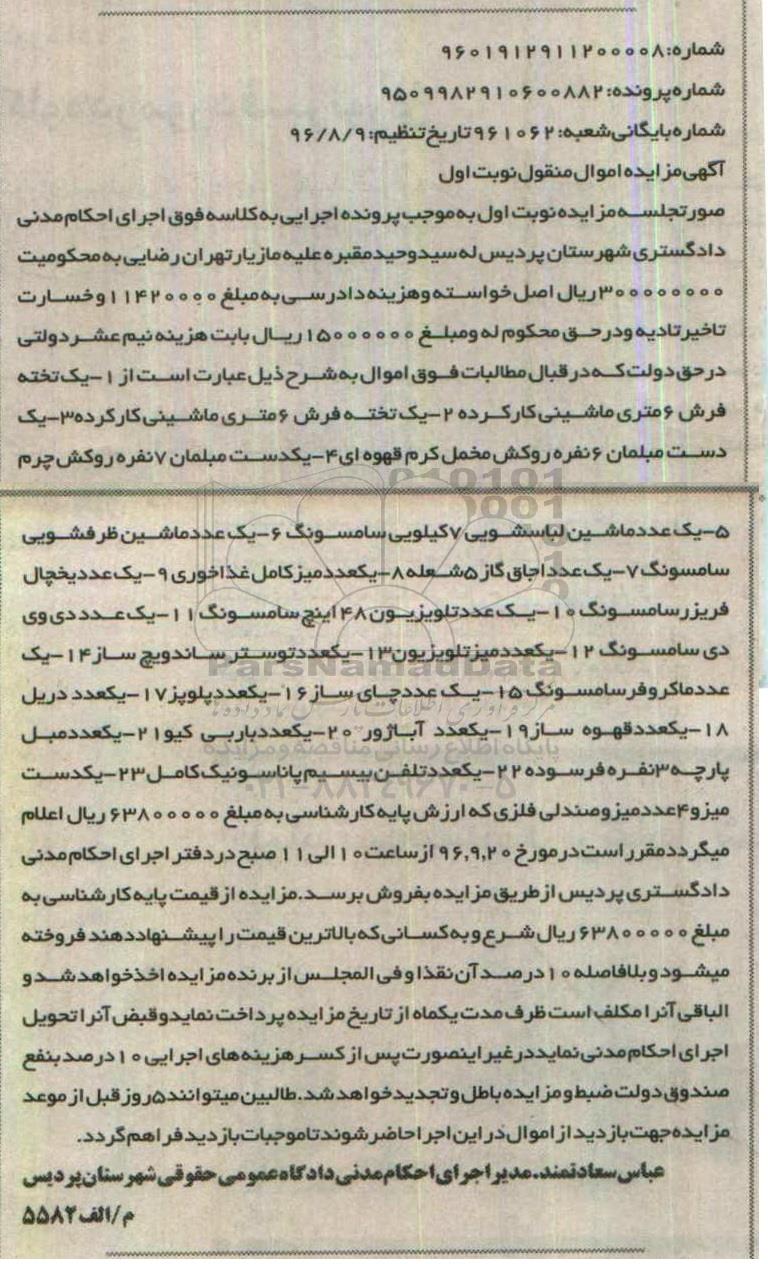 شماره: ۹۶۰۱۹۱۲۹۱۱۲۰۰۰۰۸
شماره پرونده: ۹۵۰۹۹۸۲۹۱۰۶۰۰۸۸۲
شماره بایگانی شعبه: ۹۶۱۰۶۲ تاریخ تنظیم: ۹۶/۸/۹
آگهی مزایده اموال منقول نوبت اول
صورتجلسه مزایده نوبت اول به موجب پرونده اجرایی به کلاسه فوق اجرای احکام مدنی
دادگستری شهرستان پردیس له سیدوحید مقبره علیه مازیار تهران رضایی به محکومیت
۳۰۰۰۰۰۰۰۰ ریال اصل خواسته و هزینه دادرسی به مبلغ ۱۱۴۲۰۰۰۰ و خسارت
تاخیر تادیه و در حق محکوم له و مبلغ ۱۵۰۰۰۰۰۰ ریال بابت هزینه نیم عشر دولتی
در حق دولت که در قبال مطالبات فوق اموال به شرح ذیل عبارت است از ۱-یک تخته
فرش ۶ متری ماشینی کارکرده ۲-یک تخته فرش ۶ متری ماشینی کارکرده ۳-یک
دست مبلمان ۶ نفره روکش مخمل کرم قهوه ای ۴-یکدست مبلمان ۷ نفره روکش چرم
۵-یک عدد ماشین لباسشویی ۷ کیلویی سامسونگ ۶-یک عدد ماشین ظرفشویی
سامسونگ ۷-یک عدد اجاق گاز ۵ شعله ۸-یکعدد میز کامل غذاخوری ۹-یک عدد یخچال
فریزر سامسونگ ۱۰-یک عدد تلویزیون ۴۸ اینچ سامسونگ ۱۱-یک عدد دی وی
دی سامسونگ ۱۲-یکعدد میز تلویزیون ۱۳-یکعدد توستر ساندویچ ساز ۱۴-یک
عدد ماکروفر سامسونگ ۱۵-یک عدد چای ساز ۱۶-یکعدد پلوپز ۱۷-یکعدد دریل
۱۸-یکعدد قهوه ساز ۱۹-یکعدد آباژور ۲۰-یکعدد باربی کیو ۲۱-یکعدد مبل
پارچه ۳ نفره فرسوده ۲۲-یکعدد تلفن بیسیم پاناسونیک کامل ۲۳-یکدست
میز و ۴ عدد میز و صندلی فلزی که ارزش پایه کارشناسی به مبلغ ۶۳۸۰۰۰۰۰ ریال اعلام
میگردد مقرر است در مورخ ۹۶,۹,۲۰ از ساعت ۱۰ الی ۱۱ صبح در دفتر اجرای احکام مدنی
دادگستری پردیس از طریق مزایده بفروش برسد. مزایده از قیمت پایه کارشناسی به
مبلغ ۶۳۸۰۰۰۰۰ ریال شرع و به کسانی که بالاترین قیمت را پیشنهاد دهند فروخته
میشود و بلافاصله ۱۰ درصد آن نقذا و فی المجلس از برنده مزایده اخذ خواهد شد و
الباقی آنرا مکلف است ظرف مدت یکماه از تاریخ مزایده پرداخت نماید و قبض آنرا تحویل
اجرای احکام مدنی نماید در غیر اینصورت پس از کسر هزینه های اجرایی ۱۰ درصد بنفع
صندوق دولت ضبط و مزایده باطل و تجدید خواهد شد. طالبین میتوانند ۵ روز قبل از موعد
مزایده جهت بازدید از اموال در این اجرا حاضر شوند تا موجبات بازدید فراهم گردد.
عباس سعادتمند. مدیر اجرای احکام مدنی دادگاه عمومی حقوقی شهرستان پردیس
م/الف ۵۵۸۲
ParsNamadData
پایگاه اطلاع رسانی مناقصه و مزایده